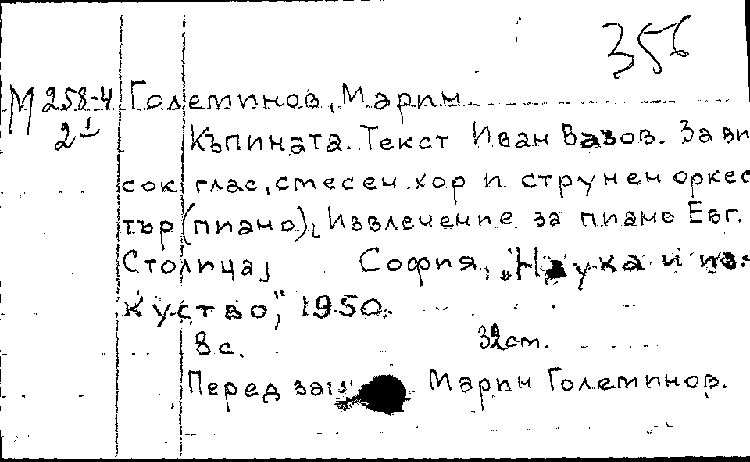 356
М 258-4 Големинов, Марин
2¹ Къпината. Текст Иван Вазов. За ви
сок глас, смесен хор и струнен оркес
тър (пиано), Извлечение за пиано Евг.
Столица] София, „Наука и из-
куство," 1950.
8 с. 32 см.
Перед заг Марин Големинов.